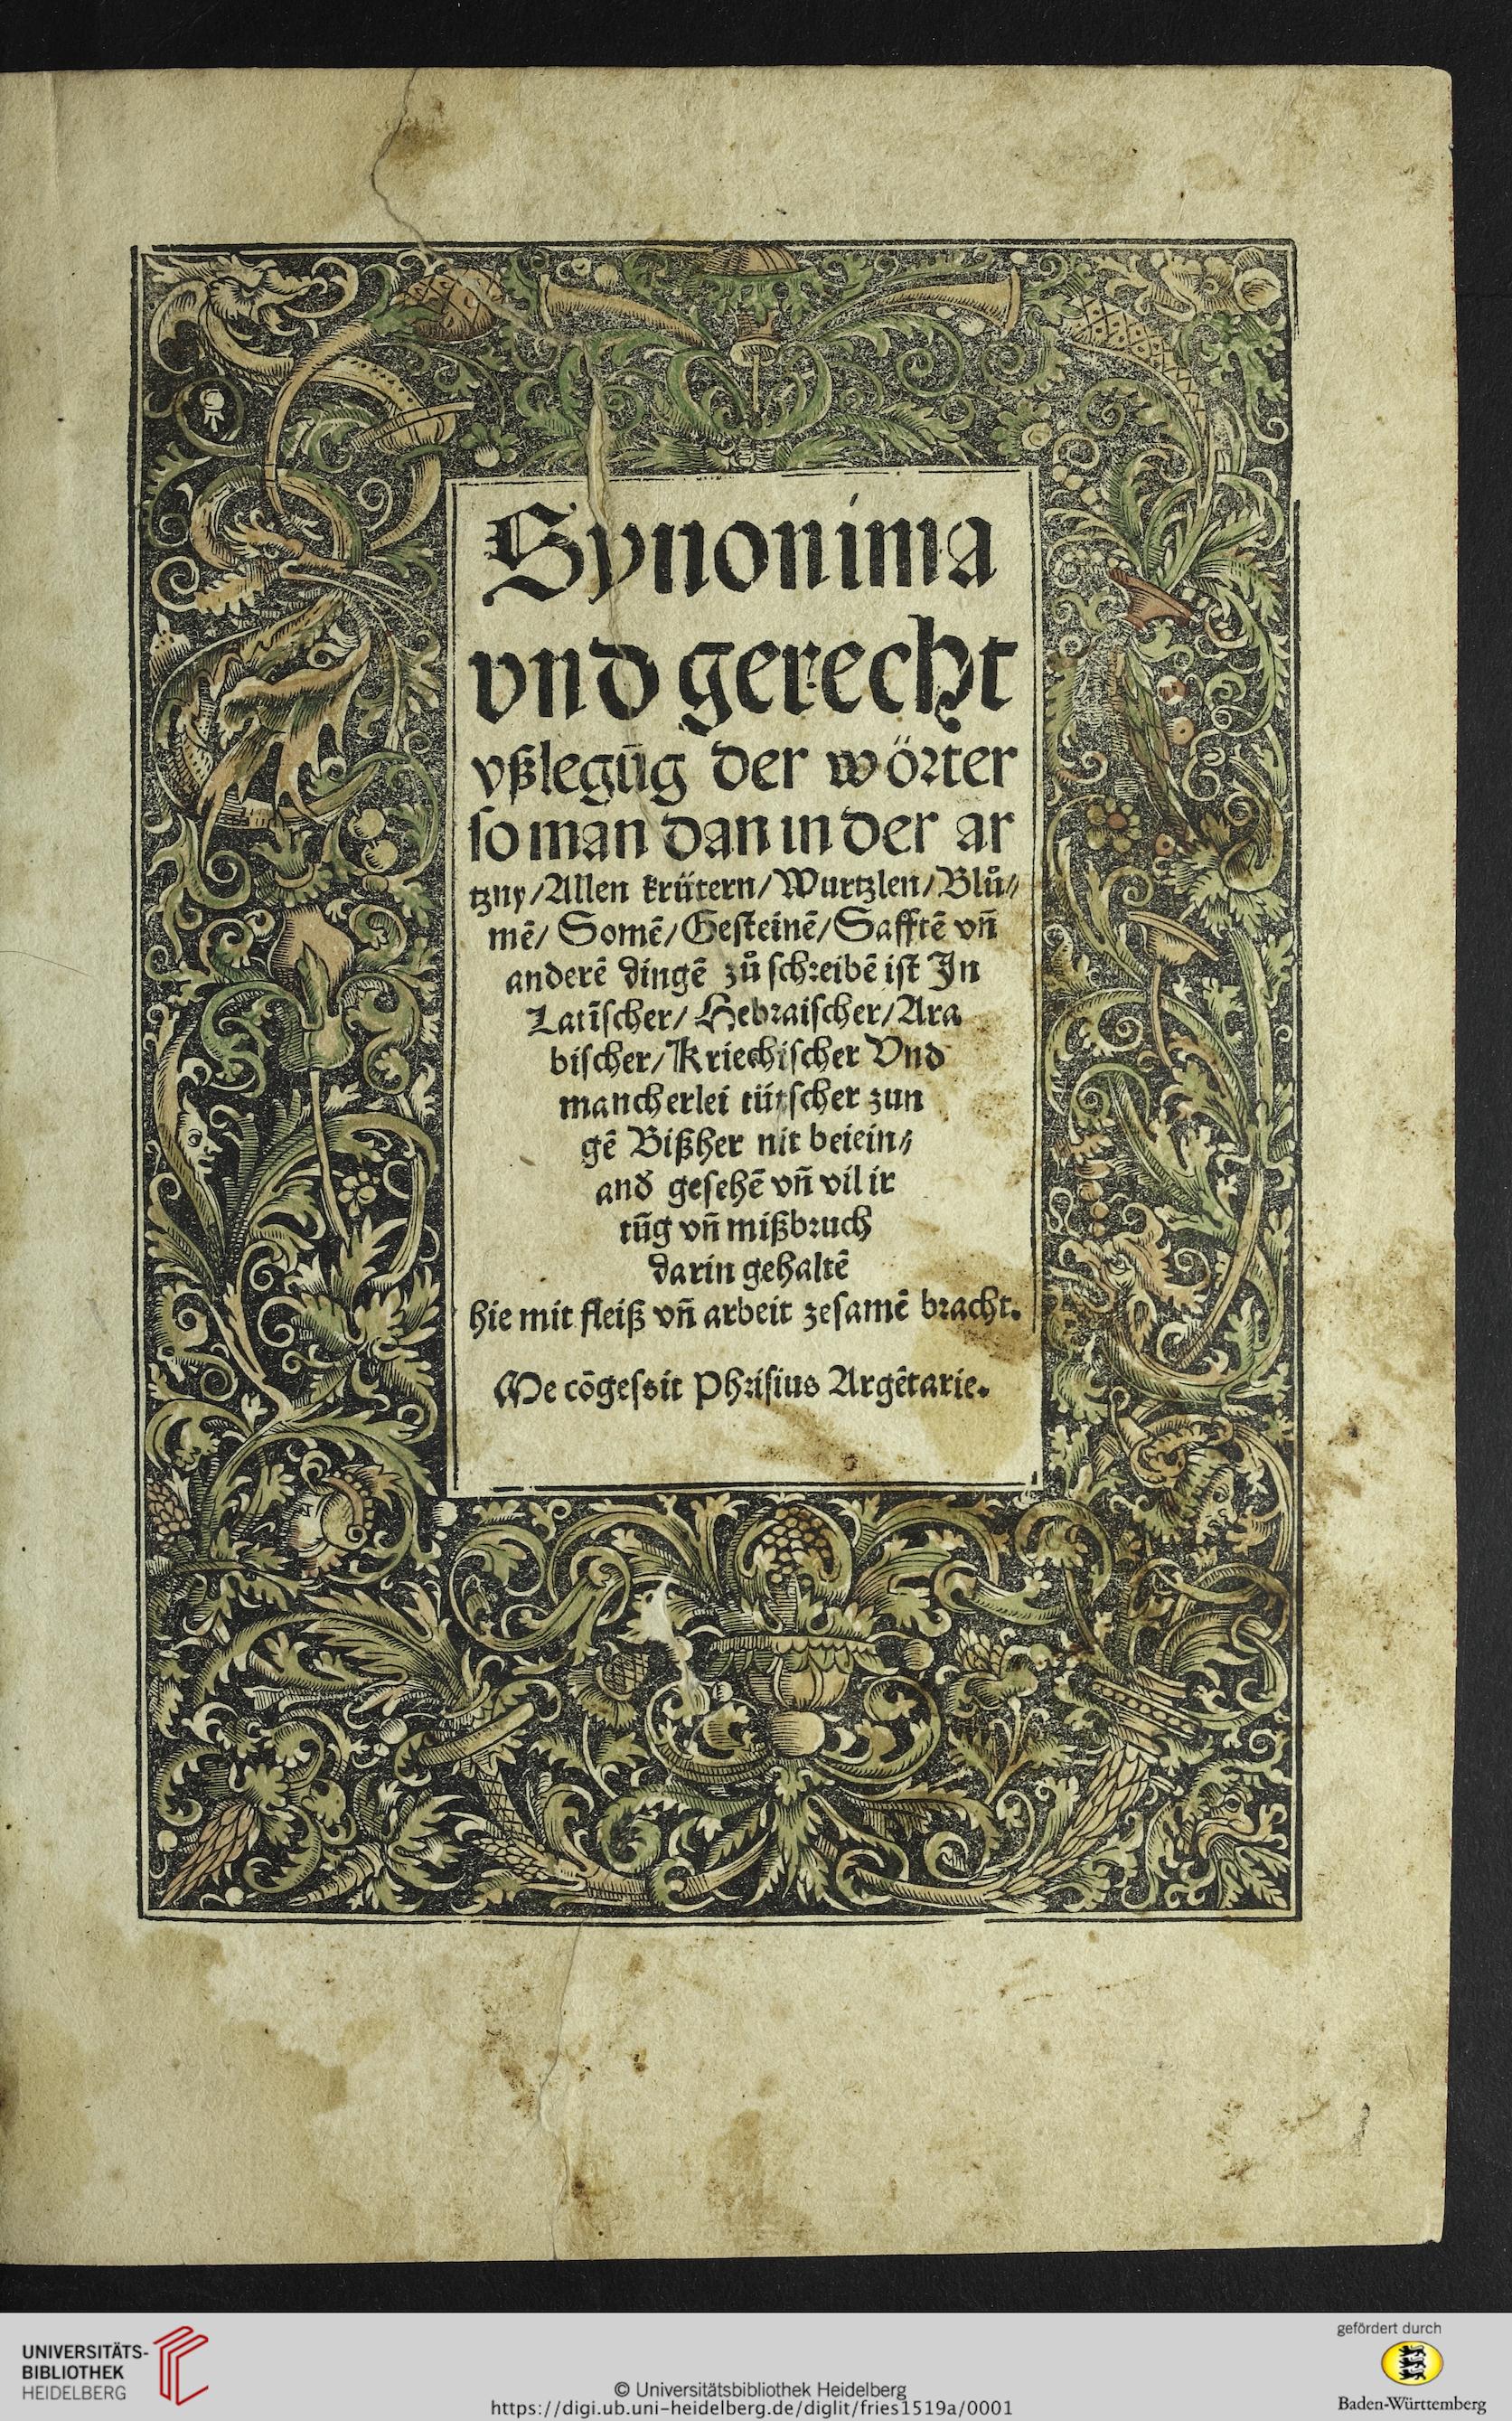 Synonima
vnd gerecht
vßlegūg der wörter
so man dan in der ar
tzny/Allen krütern/Wurtzlen/Blů⸗
mē/ Somē/Gesteinē/Safftē vñ
anderē dingē zů schreibē ist In
Latīscher/ Hebraischer/Ara
bischer/Kriechischer Vnd
mancherlei tütscher zun
gē Bißher nit beiein⸗
and gesehē vñ vil ir
rūg vñ mißbruch
darin gehaltē
hie mit fleiß vñ arbeit zesamē bracht.
Me cōgessit Phrisius Argētarie.
UNIVERSITÄTS-
BIBLIOTHEK
HEIDELBERG
© Universitätsbibliothek Heidelberg
https://digi.ub.uni-heidelberg.de/diglit/fries1519a/0001
gefördert durch
Baden-Württemberg